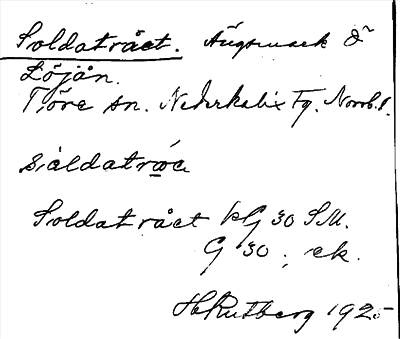 Soldatrået. Ängsmark å
Löjån.
Töre sn. Nederkalix Fg. Norrb. l.
sàldatrǻe
Soldatrået kG 30 SM.
G 30 ; ek.
H Rutberg 1925